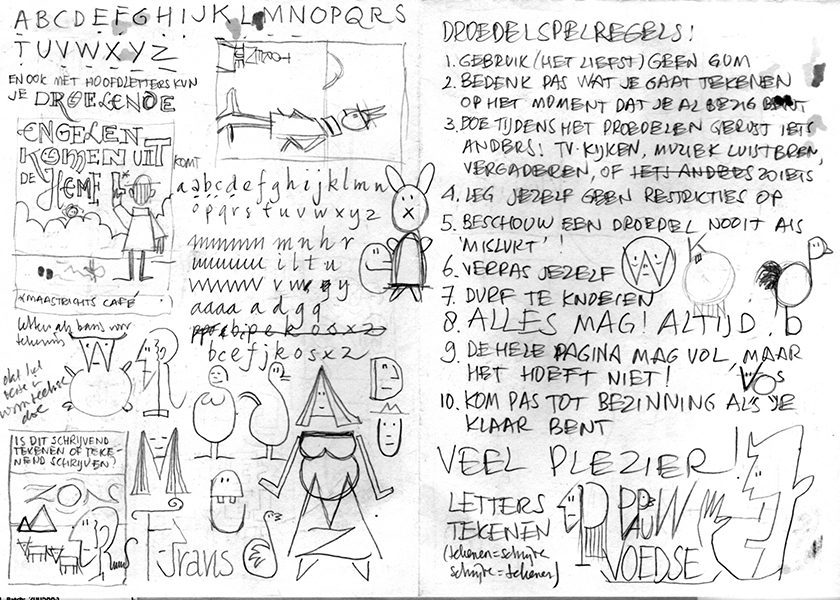 ABCDEFGHIJKLMNOPQRS
TUVWXYZ
EN OOK MET HOOFDLETTERS KUN
JE DROELENDE
ENGELEN
KOMEN UIT
DE HEMEL
KOMT
a abcdefghijklmn
opqrs tuvwxyz
mnhr
iltu
aaaa a d g q
bcefjkosxz
MAASTRICHTS CAFÉ
letter als basis voor
tekenen
IS DIT SCHRIJVEND
TEKENEN OF TEKE-
NEND SCHRIJVEN?
ZON
Frans
DROEDELSPELREGELS!
1. GEBRUIK (HET LIEFST) GEEN GUM
2. BEDENK PAS WAT JE GAAT TEKENEN
OP HET MOMENT DAT JE AL BEZIG BENT
3. DOE TIJDENS HET DROEDELEN GERUST IETS
ANDERS: TV-KIJKEN, MUZIEK LUISTEREN,
VERGADEREN, OF IETS ANDERS ZOIETS
4. LEG JEZELF GEEN RESTRICTIES OP
5. BESCHOUW EEN DROEDEL NOOIT ALS
'MISLUKT'!
6. VERRAS JEZELF
7. DURF TE KNOEIEN
8. ALLES MAG! ALTIJD.
9. DE HELE PAGINA MAG VOL, MAAR
HET HOEFT NIET!
VOS
10. KOM PAS TOT BEZINNING ALS JE
KLAAR BENT
VEEL PLEZIER!
LETTERS
TEKENEN
(tekenen=schrijven
schrijven=tekenen)
PAUW
VOEDSE